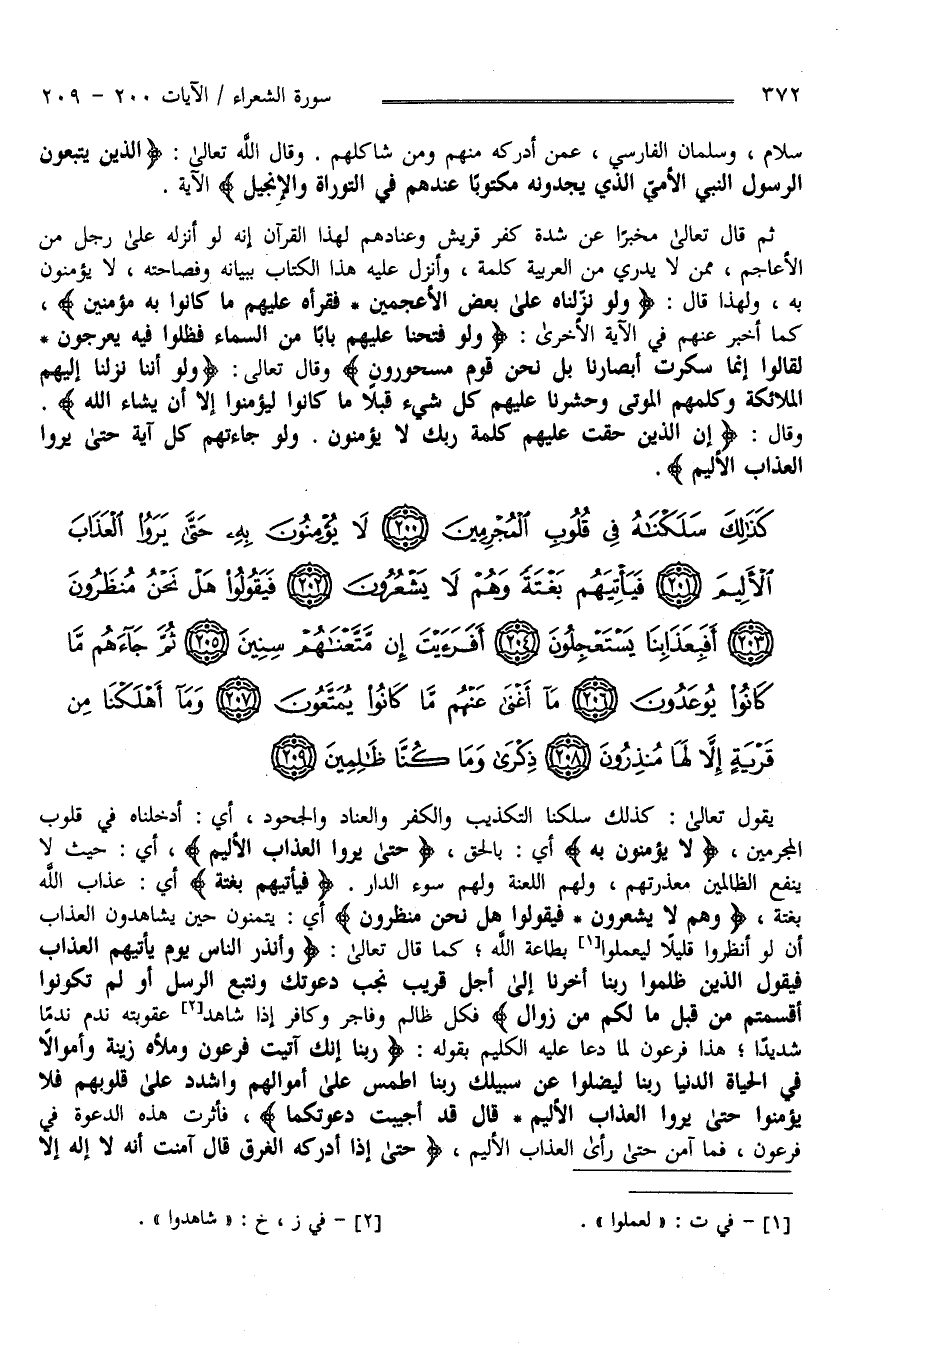 ٣٧٢ سورة الشعراء / الآيات ٢٠٠ - ٢٠٩
سلام ، وسلمان الفارسي ، عمن أدركه منهم ومن شاكلهم . وقال اللَّه تعالىٰ : ﴿ الذين يتبعون
الرسول النبي الأميّ الذي يجدونه مكتوبًا عندهم في التوراة والإنجيل ﴾ الآية .
ثم قال تعالىٰ مخبرًا عن شدة كفر قريش وعنادهم لهذا القرآن إنه لو أنزله علىٰ رجل من
الأعاجم ، ممن لا يدري من العربية كلمة ، وأنزل عليه هذا الكتاب ببيانه وفصاحته ، لا يؤمنون
به ، ولهذا قال : ﴿ ولو نزّلناه علىٰ بعض الأعجمين * فقرأه عليهم ما كانوا به مؤمنين ﴾ ،
كما أخبر عنهم في الآية الأخرىٰ : ﴿ ولو فتحنا عليهم بابًا من السماء فظلوا فيه يعرجون *
لقالوا إنما سكرت أبصارنا بل نحن قوم مسحورون ﴾ وقال تعالى : ﴿ولو أننا نزلنا إليهم
الملائكة وكلمهم الموتى وحشرنا عليهم كل شيء قبلًا ما كانوا ليؤمنوا إلا أن يشاء الله ﴾ .
وقال : ﴿ إن الذين حقت عليهم كلمة ربك لا يؤمنون . ولو جاءتهم كل آية حتىٰ يروا
العذاب الأليم ﴾ .
كَذَٰلِكَ سَلَكْنَٰهُ فِى قُلُوبِ ٱلْمُجْرِمِينَ ٢٠٠ لَا يُؤْمِنُونَ بِهِۦ حَتَّىٰ يَرَوُا۟ ٱلْعَذَابَ
ٱلْأَلِيمَ ٢٠١ فَيَأْتِيَهُم بَغْتَةً وَهُمْ لَا يَشْعُرُونَ ٢٠٢ فَيَقُولُوا۟ هَلْ نَحْنُ مُنظَرُونَ
٢٠٣ أَفَبِعَذَابِنَا يَسْتَعْجِلُونَ ٢٠٤ أَفَرَءَيْتَ إِن مَّتَّعْنَٰهُمْ سِنِينَ ٢٠٥ ثُمَّ جَآءَهُم مَّا
كَانُوا۟ يُوعَدُونَ ٢٠٦ مَآ أَغْنَىٰ عَنْهُم مَّا كَانُوا۟ يُمَتَّعُونَ ٢٠٧ وَمَآ أَهْلَكْنَا مِن
قَرْيَةٍ إِلَّا لَهَا مُنذِرُونَ ٢٠٨ ذِكْرَىٰ وَمَا كُنَّا ظَٰلِمِينَ ٢٠٩
يقول تعالىٰ : كذلك سلكنا التكذيب والكفر والعناد والجحود ، أي : أدخلناه في قلوب
المجرمين ، ﴿ لا يؤمنون به ﴾ أي : بالحق ، ﴿ حتىٰ يروا العذاب الأليم ﴾ ، أي : حيث لا
ينفع الظالمين معذرتهم ، ولهم اللعنة ولهم سوء الدار . ﴿ فيأتيهم بغتة ﴾ أي : عذاب اللَّه
بغتة ، ﴿ وهم لا يشعرون * فيقولوا هل نحن منظرون ﴾ أي : يتمنون حين يشاهدون العذاب
أن لو أنظروا قليلًا ليعملوا[١] بطاعة اللَّه ؛ كما قال تعالىٰ : ﴿ وأنذر الناس يوم يأتيهم العذاب
فيقول الذين ظلموا ربنا أخرنا إلىٰ أجل قريب نجب دعوتك ونتبع الرسل أو لم تكونوا
أقسمتم من قبل ما لكم من زوال ﴾ فكل ظالم وفاجر وكافر إذا شاهد[٢] عقوبته ندم ندمًا
شديدًا ؛ هذا فرعون لما دعا عليه الكليم بقوله : ﴿ ربنا إنك آتيت فرعون وملأه زينة وأموالًا
في الحياة الدنيا ربنا ليضلوا عن سبيلك ربنا اطمس علىٰ أموالهم واشدد علىٰ قلوبهم فلا
يؤمنوا حتىٰ يروا العذاب الأليم * قال قد أجيبت دعوتكما ﴾ ، فأثرت هذه الدعوة في
فرعون ، فما آمن حتىٰ رأىٰ العذاب الأليم ، ﴿ حتىٰ إذا أدركه الغرق قال آمنت أنه لا إله إلا
[١] - في ت : « لعملوا » . [٢] - في ز ، خ : « شاهدوا » .